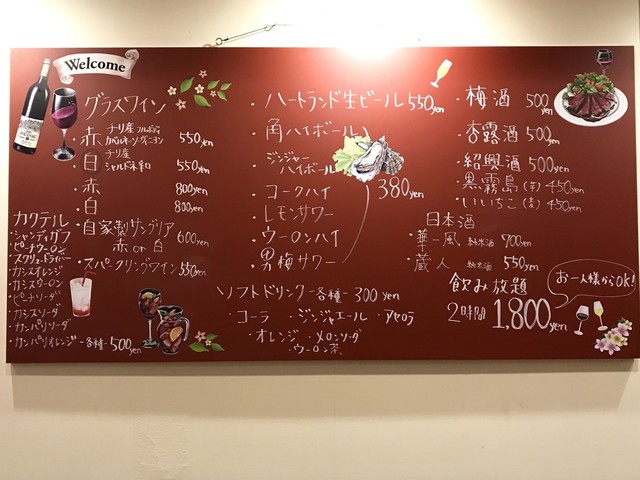 Welcome
グラスワイン
・赤 チリ産 フルボディ カベルネ・ソーヴィニヨン 550yen
・白 チリ産 シャルドネ辛口 550yen
・赤 800yen
・白 800yen
・自家製サングリア
赤 or 白 600yen
・スパークリングワイン 550yen
カクテル
・シャンディガフ
・ピーチウーロン
・スクリュードライバー
・カシスオレンジ
・カシスウーロン
・ピーチソーダ
・カシスソーダ
・カンパリソーダ
・カンパリオレンジ - 各種 - 500yen
・ハートランド生ビール 550yen
・角ハイボール
・ジンジャー
ハイボール
・コークハイ
・レモンサワー
・ウーロンハイ
・男梅サワー
380yen
ソフトドリンク - 各種 - 300yen
・コーラ ・ジンジャエール ・アセロラ
・オレンジ ・メロンソーダ
・ウーロン茶
・梅酒 500yen
・杏露酒 500yen
・紹興酒 500yen
・黒霧島(芋)450yen
・いいちこ(麦)450yen
日本酒
・華一風 純米酒 700yen
・蔵人 純米酒 550yen
飲み放題
2時間 1,800yen
お一人様からOK!